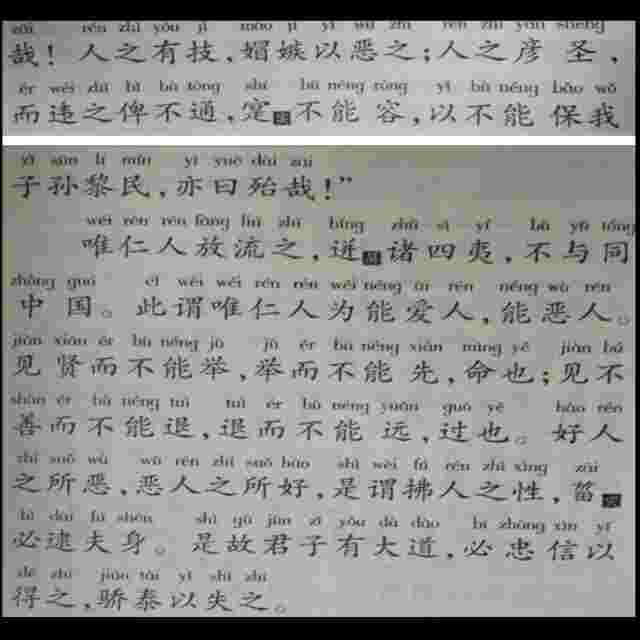 zāi rén zhī yǒu jì mào jí yǐ wù zhī rén zhī yàn shèng
哉！人之有技，媢嫉以恶之；人之彦圣，
ér wéi zhī bǐ bù tōng shí bù néng róng yǐ bù néng bǎo wǒ
而违之俾不通，寔不能容，以不能保我
zǐ sūn lí mín yì yuē dài zāi
子孙黎民，亦曰殆哉！”
wéi rén rén fàng liú zhī bǐng zhū sì yí bù yǔ tóng
唯仁人放流之，迸诸四夷，不与同
zhōng guó cǐ wèi wéi rén rén wéi néng ài rén néng wù rén
中国。此谓唯仁人为能爱人，能恶人。
jiàn xián ér bù néng jǔ jǔ ér bù néng xiān mìng yě jiàn bú
见贤而不能举，举而不能先，命也；见不
shàn ér bù néng tuì tuì ér bù néng yuǎn guò yě hào rén
善而不能退，退而不能远，过也。好人
zhī suǒ wù wù rén zhī suǒ hào shì wèi fú rén zhī xìng zāi
之所恶，恶人之所好，是谓拂人之性，菑
bì dài fú shēn shì gù jūn zǐ yǒu dà dào bì zhōng xìn yǐ
必逮夫身。是故君子有大道，必忠信以
dé zhī jiāo tài yǐ shī zhī
得之，骄泰以失之。